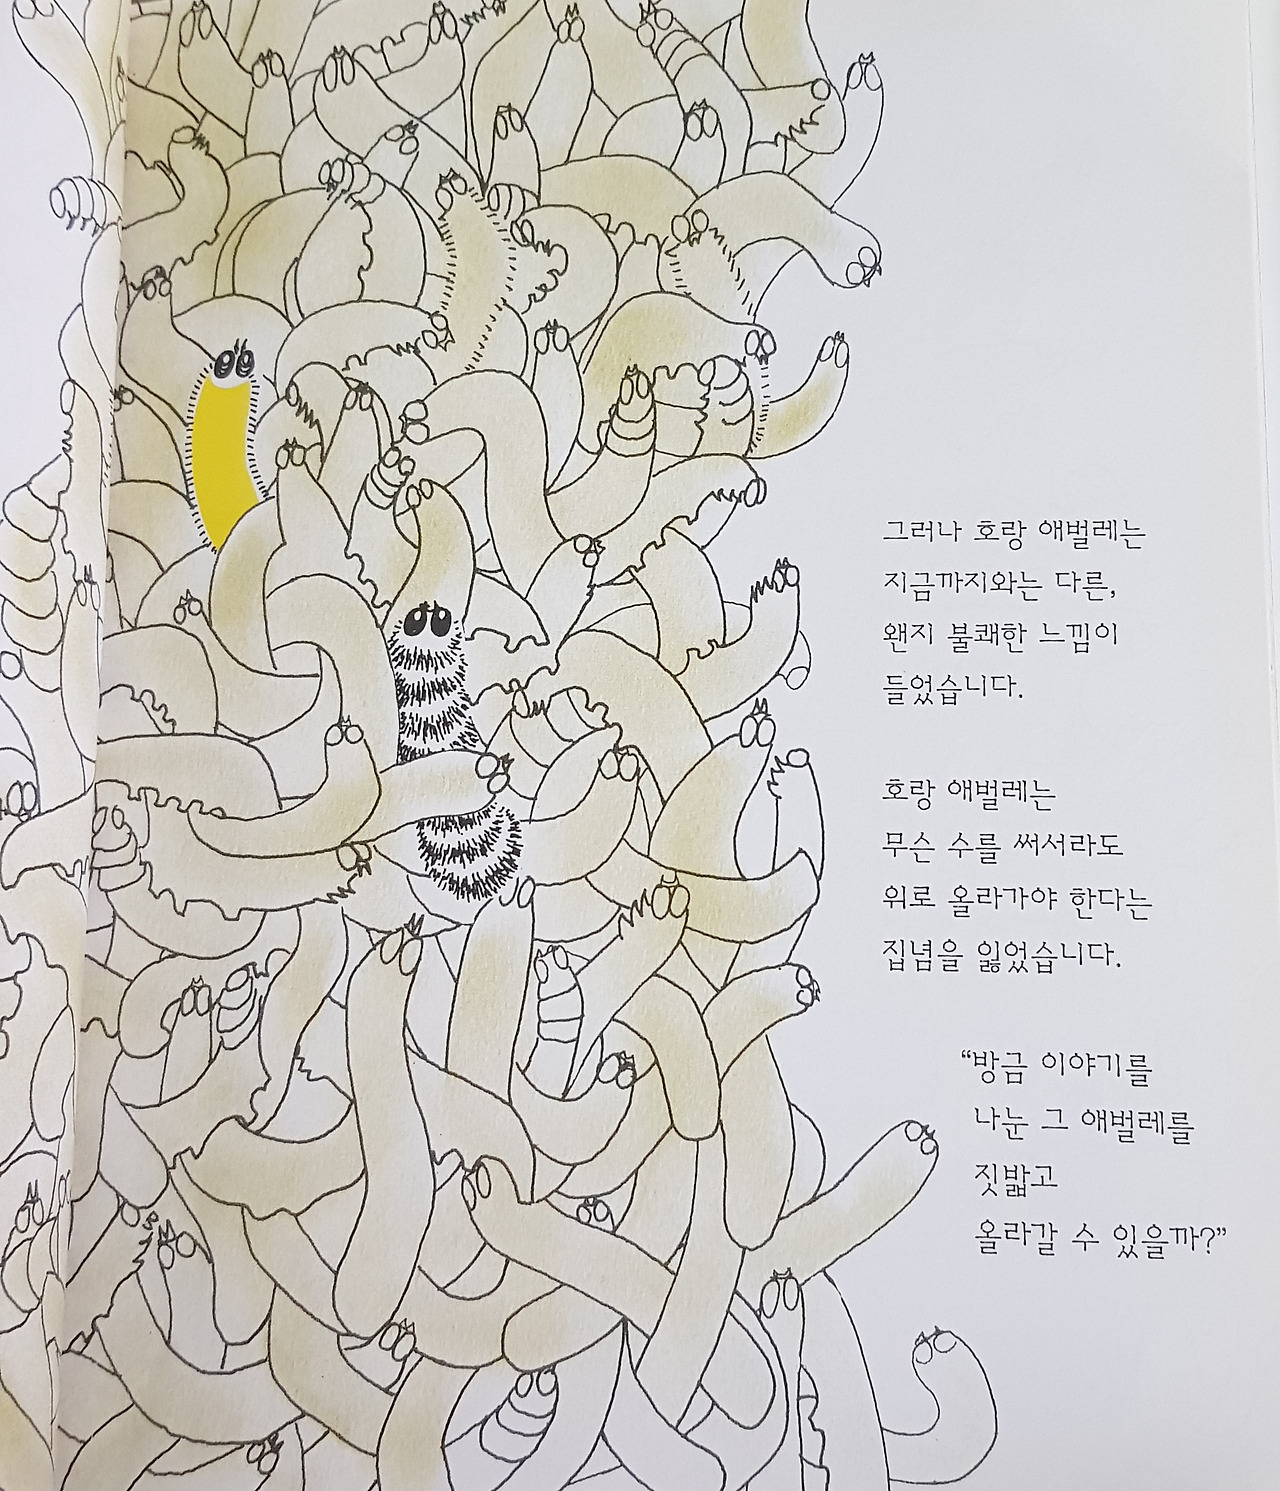 그러나 호랑 애벌레는
지금까지와는 다른,
왠지 불쾌한 느낌이
들었습니다.
호랑 애벌레는
무슨 수를 써서라도
위로 올라가야 한다는
집념을 잃었습니다.
“방금 이야기를
나눈 그 애벌레를
짓밟고
올라갈 수 있을까?”